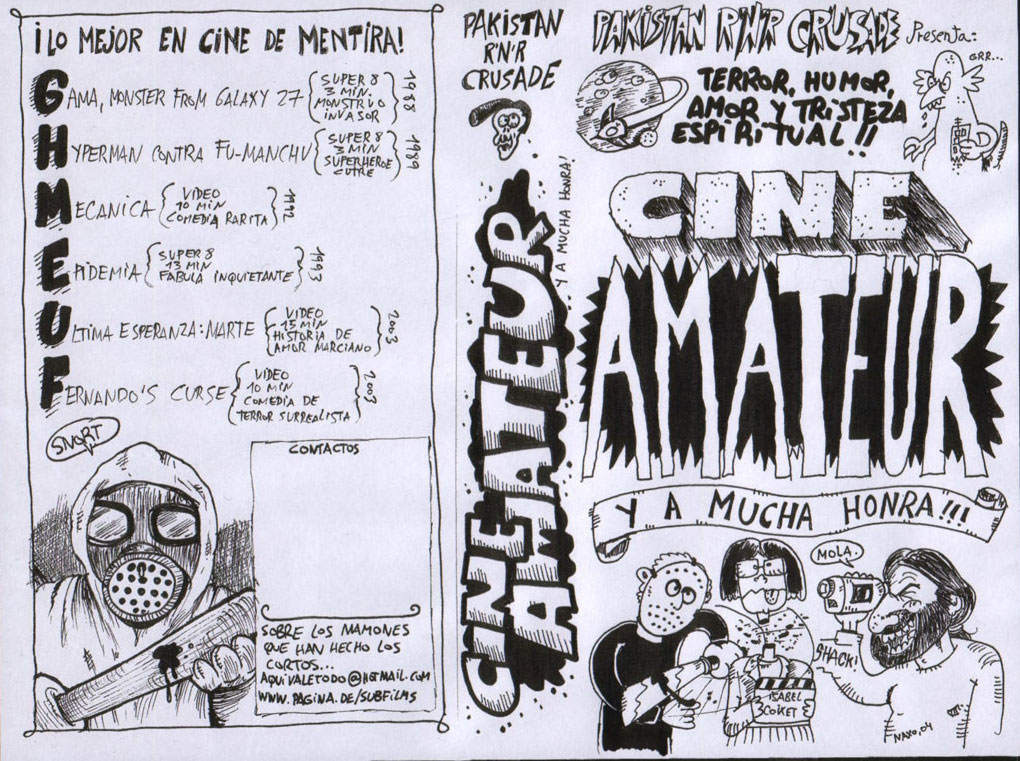 ¡LO MEJOR EN CINE DE MENTIRA!
GAMA, MONSTER FROM GALAXY 27
SUPER 8
3 MIN.
MONSTRUO
INVASOR
1988
HYPERMAN CONTRA FU-MANCHU
SUPER 8
3 MIN
SUPERHEROE
CUTRE
1989
MECANICA
VIDEO
10 MIN
COMEDIA RARITA
1992
EPIDEMIA
SUPER 8
13 MIN
FABULA INQUIETANTE
1993
ULTIMA ESPERANZA: MARTE
VIDEO
15 MIN
HISTORIA DE
AMOR MARCIANO
2003
FERNANDO'S CURSE
VIDEO
10 MIN
COMEDIA DE
TERROR SURREALISTA
2003
SNORT
CONTACTOS
SOBRE LOS MAMONES
QUE HAN HECHO LOS
CORTOS...
AQUIVALETODO@HOTMAIL.COM
WWW.PAGINA.DE/SUBFILMS
PAKISTAN
R'N'R
CRUSADE
CINE
AMATEUR
... Y A MUCHA HONRA!
PAKISTAN R'N'R CRUSADE Presenta:
GRR...
TERROR, HUMOR,
AMOR Y TRISTEZA
ESPIRITUAL!!
CINE
AMATEUR
Y A MUCHA HONRA!!!
MOLA.
SHACK!
ISABEL
COIXET
NAXO, 04